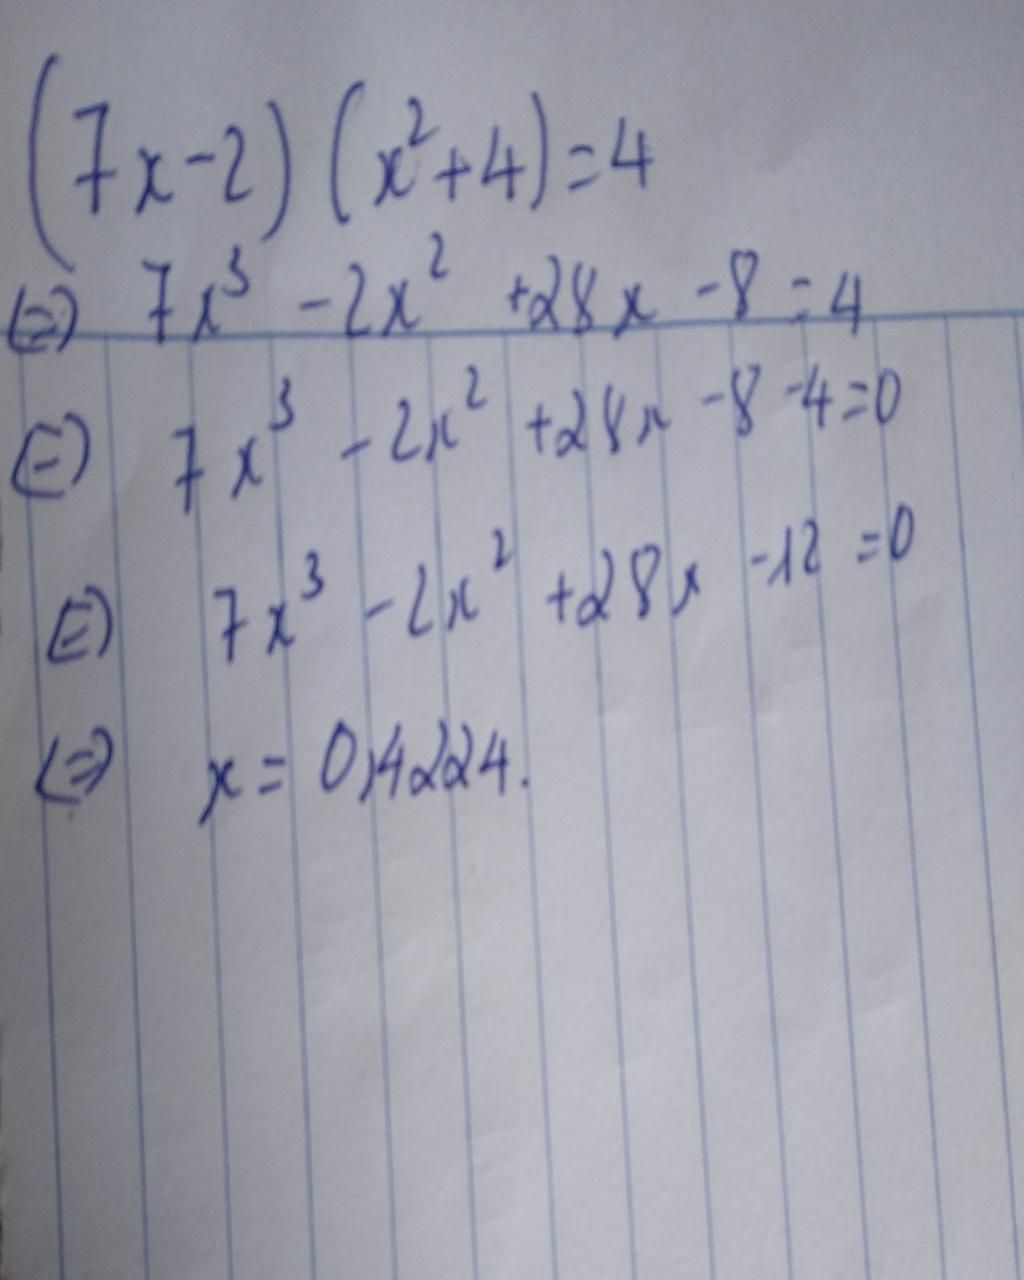 (7x-2) (x²+4)=4
(=) 7x³ -2x² +28x -8 = 4
(=) 7x³ -2x² +28x -8 -4=0
(=) 7x³ -2x² +28x -12 =0
(=) x = 0,4224.